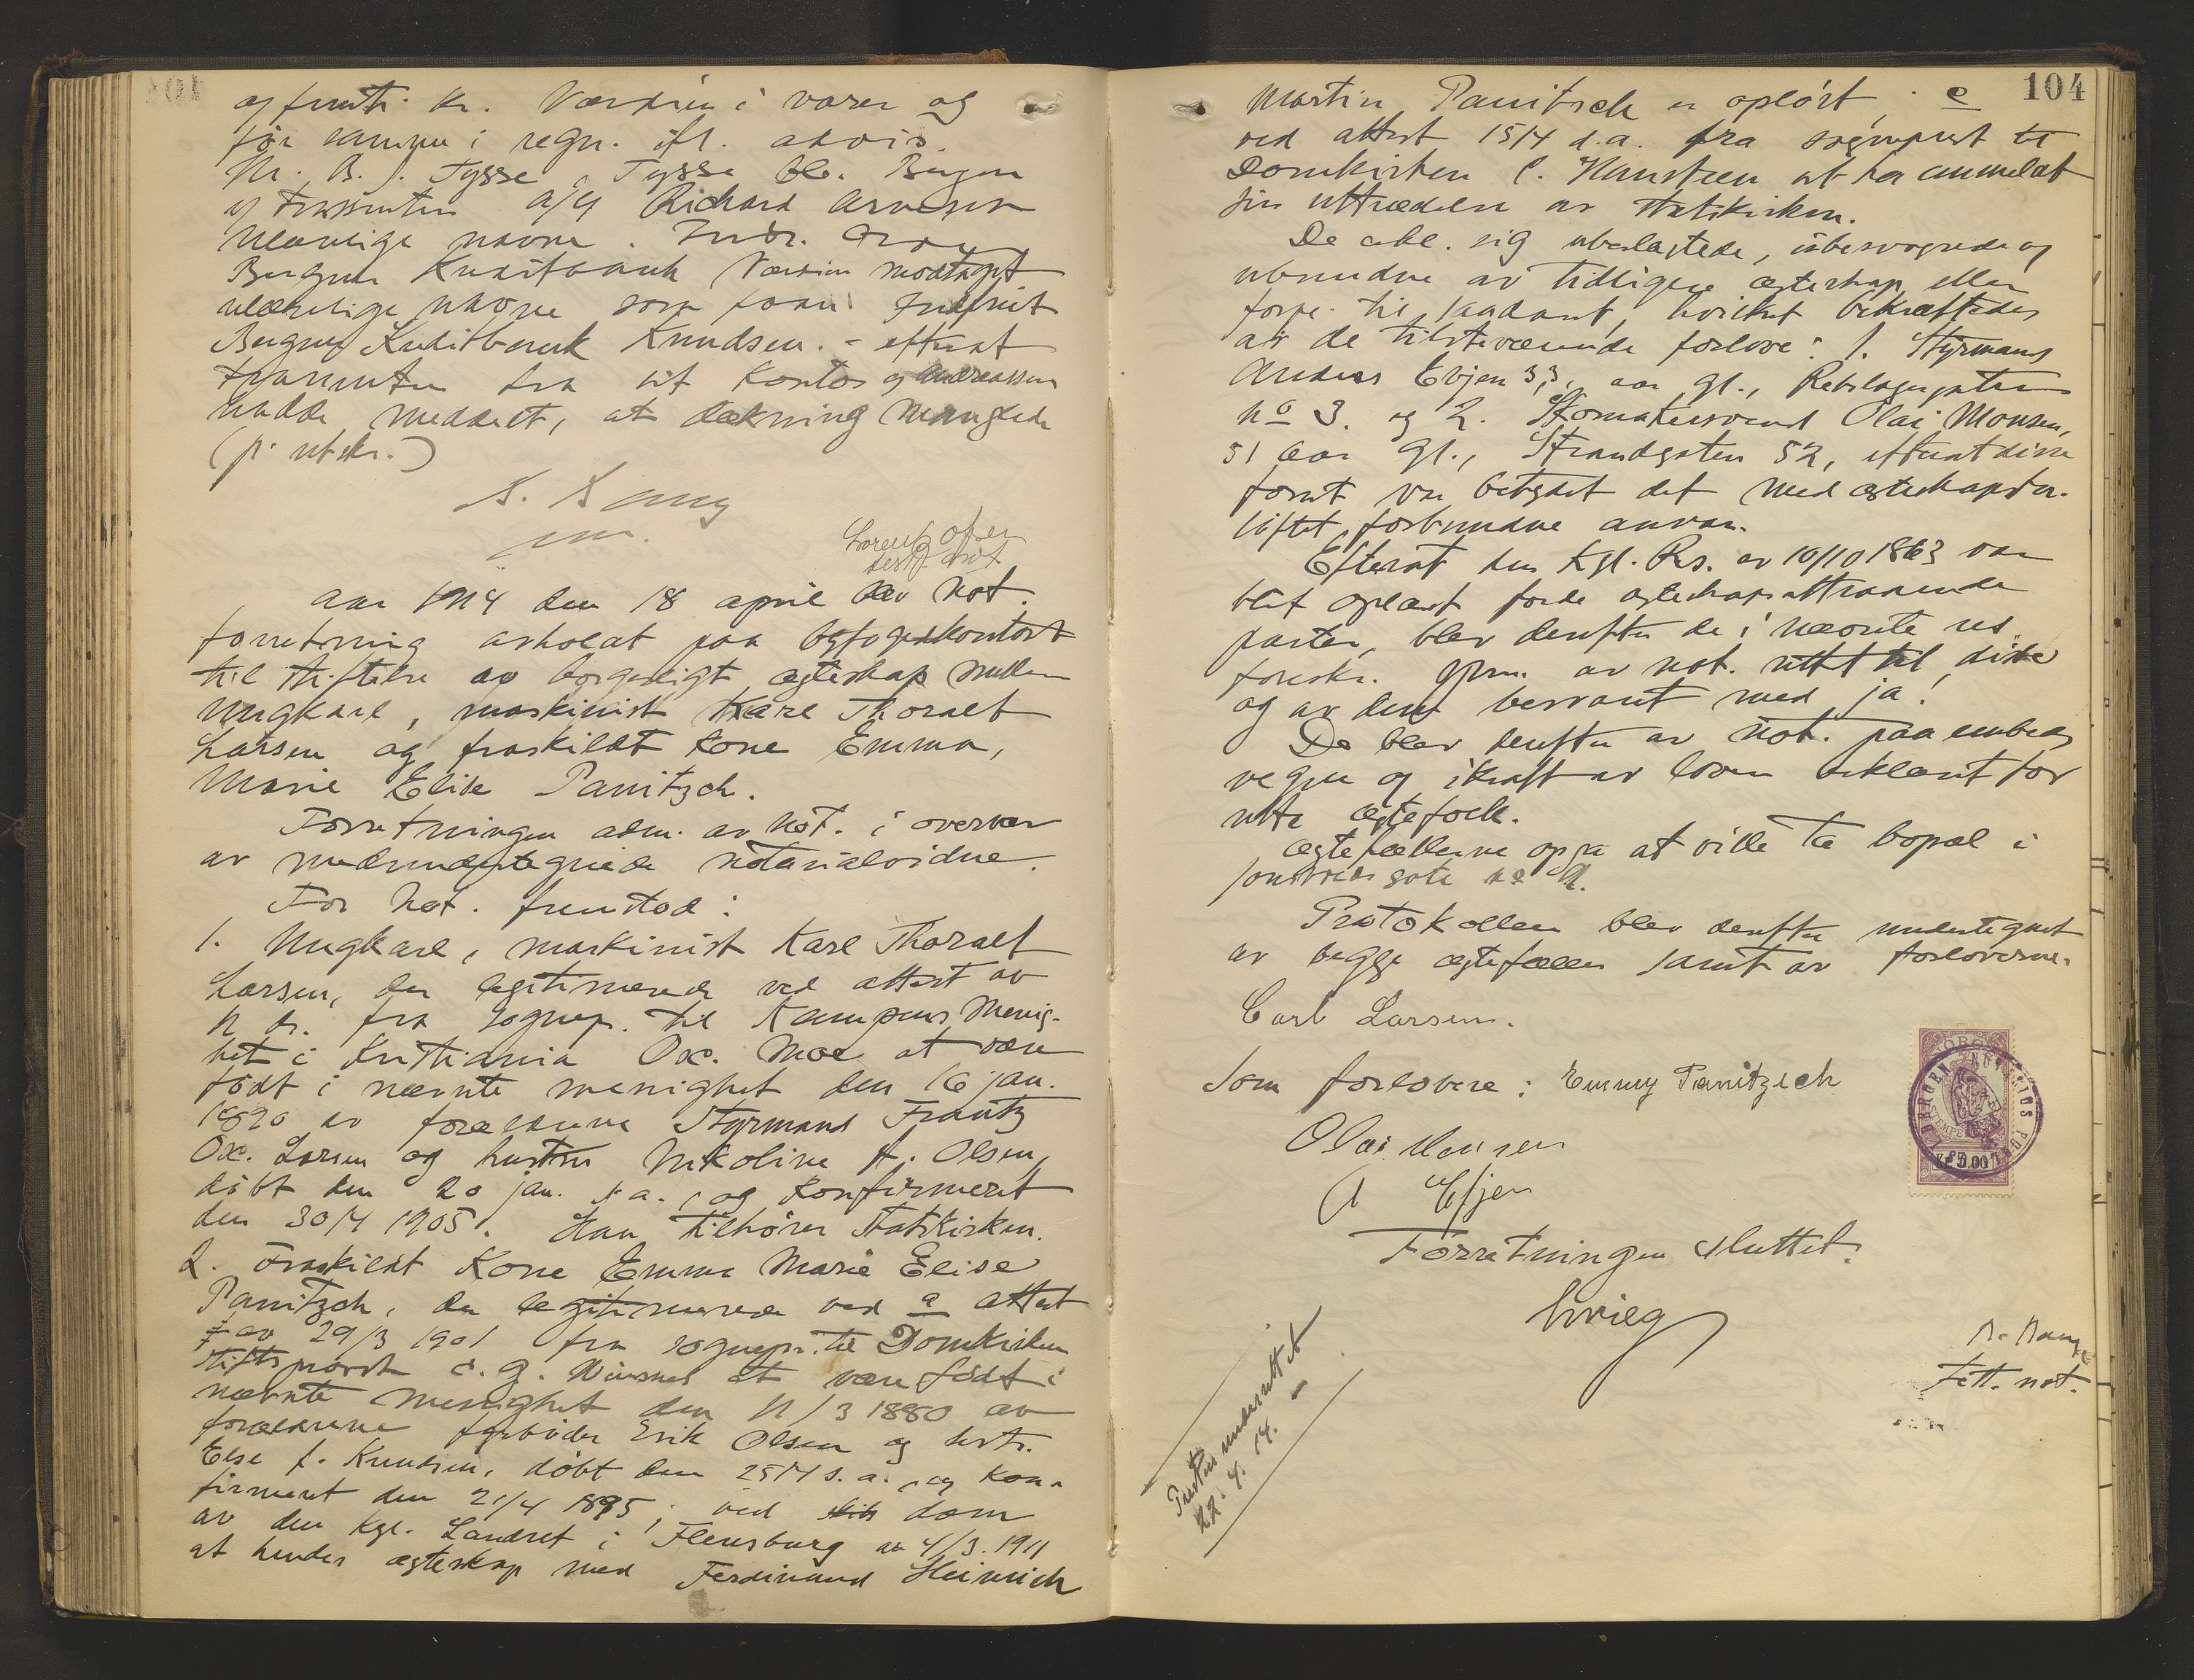 og femti kr. Værdien i varer og
før samme i regn. ifl. advis.
Hr. B. J. Tysse, Tysse str. Bergen
og Trassenten a/g Richard Arnesen
ulæselige navne.
Bergens Kreditbank Værdien modtaget
ulæselige navne som foran
Bergens Kreditbank Knudsen. - efterat
Trassenten fra sit Kontor og Andreassen
hadde meddelt, at dækning manglede
(p. utskr.)
Lorentz
Aar 1914 den 18 april blev not.
forretning avholdt paa byfogedkontoret
til stiftelse av borgerligt egteskap mellem
Ungkarl, maskinist Karl Thoralf
Larsen og fraskildt kone Emma,
Marie Elise Panitzch.
Forretningen adm. av not. i overvær
av medundertegnede notarialvidne.
For Not. fremstod:
1. Ungkarl, maskinist Karl Thoralf
Larsen, der legitimerede ved attest av
fra sognepr. til Kampens Menig-
het i Kristiania Ox. Moe at være
født i nævnte menighet den 16 jan.
1890 av forældrene Styrmand Frantz
Ox. Larsen og hustru Nikoline f. Olsen,
døbt den 20 jan. s.a., og konfirmeret
den 30/4 1905. Han tilhører Statskirken.
2. Fraskildt Kone Emma Marie Elise
Panitzch, der legitimerede ved a attest
av 29/3 1901 fra sognepr. til Domkirken
Stiftsprovst C. G. Wiesnes at være født i
nævnte menighet den 11/3 1880 av
forældrene Erik Olsen og hustr.
Else f. Knudsen, døbt den 25/4 s.a., og kon-
firmeret den 21/4 1895; ved dom
av den Kgl. Landret i Flensburg av 4/3. 1911
at hendes egteskap med Ferdinand Heinrich
104
Martin Panitzch er opløst; c
ved attest 15/4 d.a. fra sogneprest til
Domkirken C. Hansteen at ha anmeldt
sin uttrædelse av statskirken.
De erkl. sig ubeslægtede, ubesvogrede og
ubundne av tidligere egteskap eller
forpl. til saadant, hvilket bekræftedes
av de tilstedeværende forlovere: 1. Styrmand
Anders Evjen 33 aar gl., Rebslagergaten
No 3. og 2. Skomakersvend Olai Monsen,
51 aar gl., Strandgaten 52, efterat disse
forut var betydet det med egteskapsfor-
løftet forbundne ansvar.
Efterat den Kgl. Res. av 10/10 1863 var
blit oplæst for de egteskapsattraaende
parter, blev derefter de i nævnte res.
foreskr. spm. av not. rettet til disse
og av dem besvaret med ja!
De blev derefter av not. paa embeds
vegne og i kraft av loven erklæret for
rette egtefolk.
Egtefællerne opga at ville ta bopæl i
Protokollen blev derefter undertegnet
av begge egtefæller samt av forloverne.
Carl Larsen.
Som forlovere: Emmy Panitzsch
Olai Monsen
A Efjen
Forretningen sluttet.
NORGE
BERGEN NOTARIUS PUBLICUS
Kr 5.00
Fett. not.
Presten underrettet
22. 4. 14.